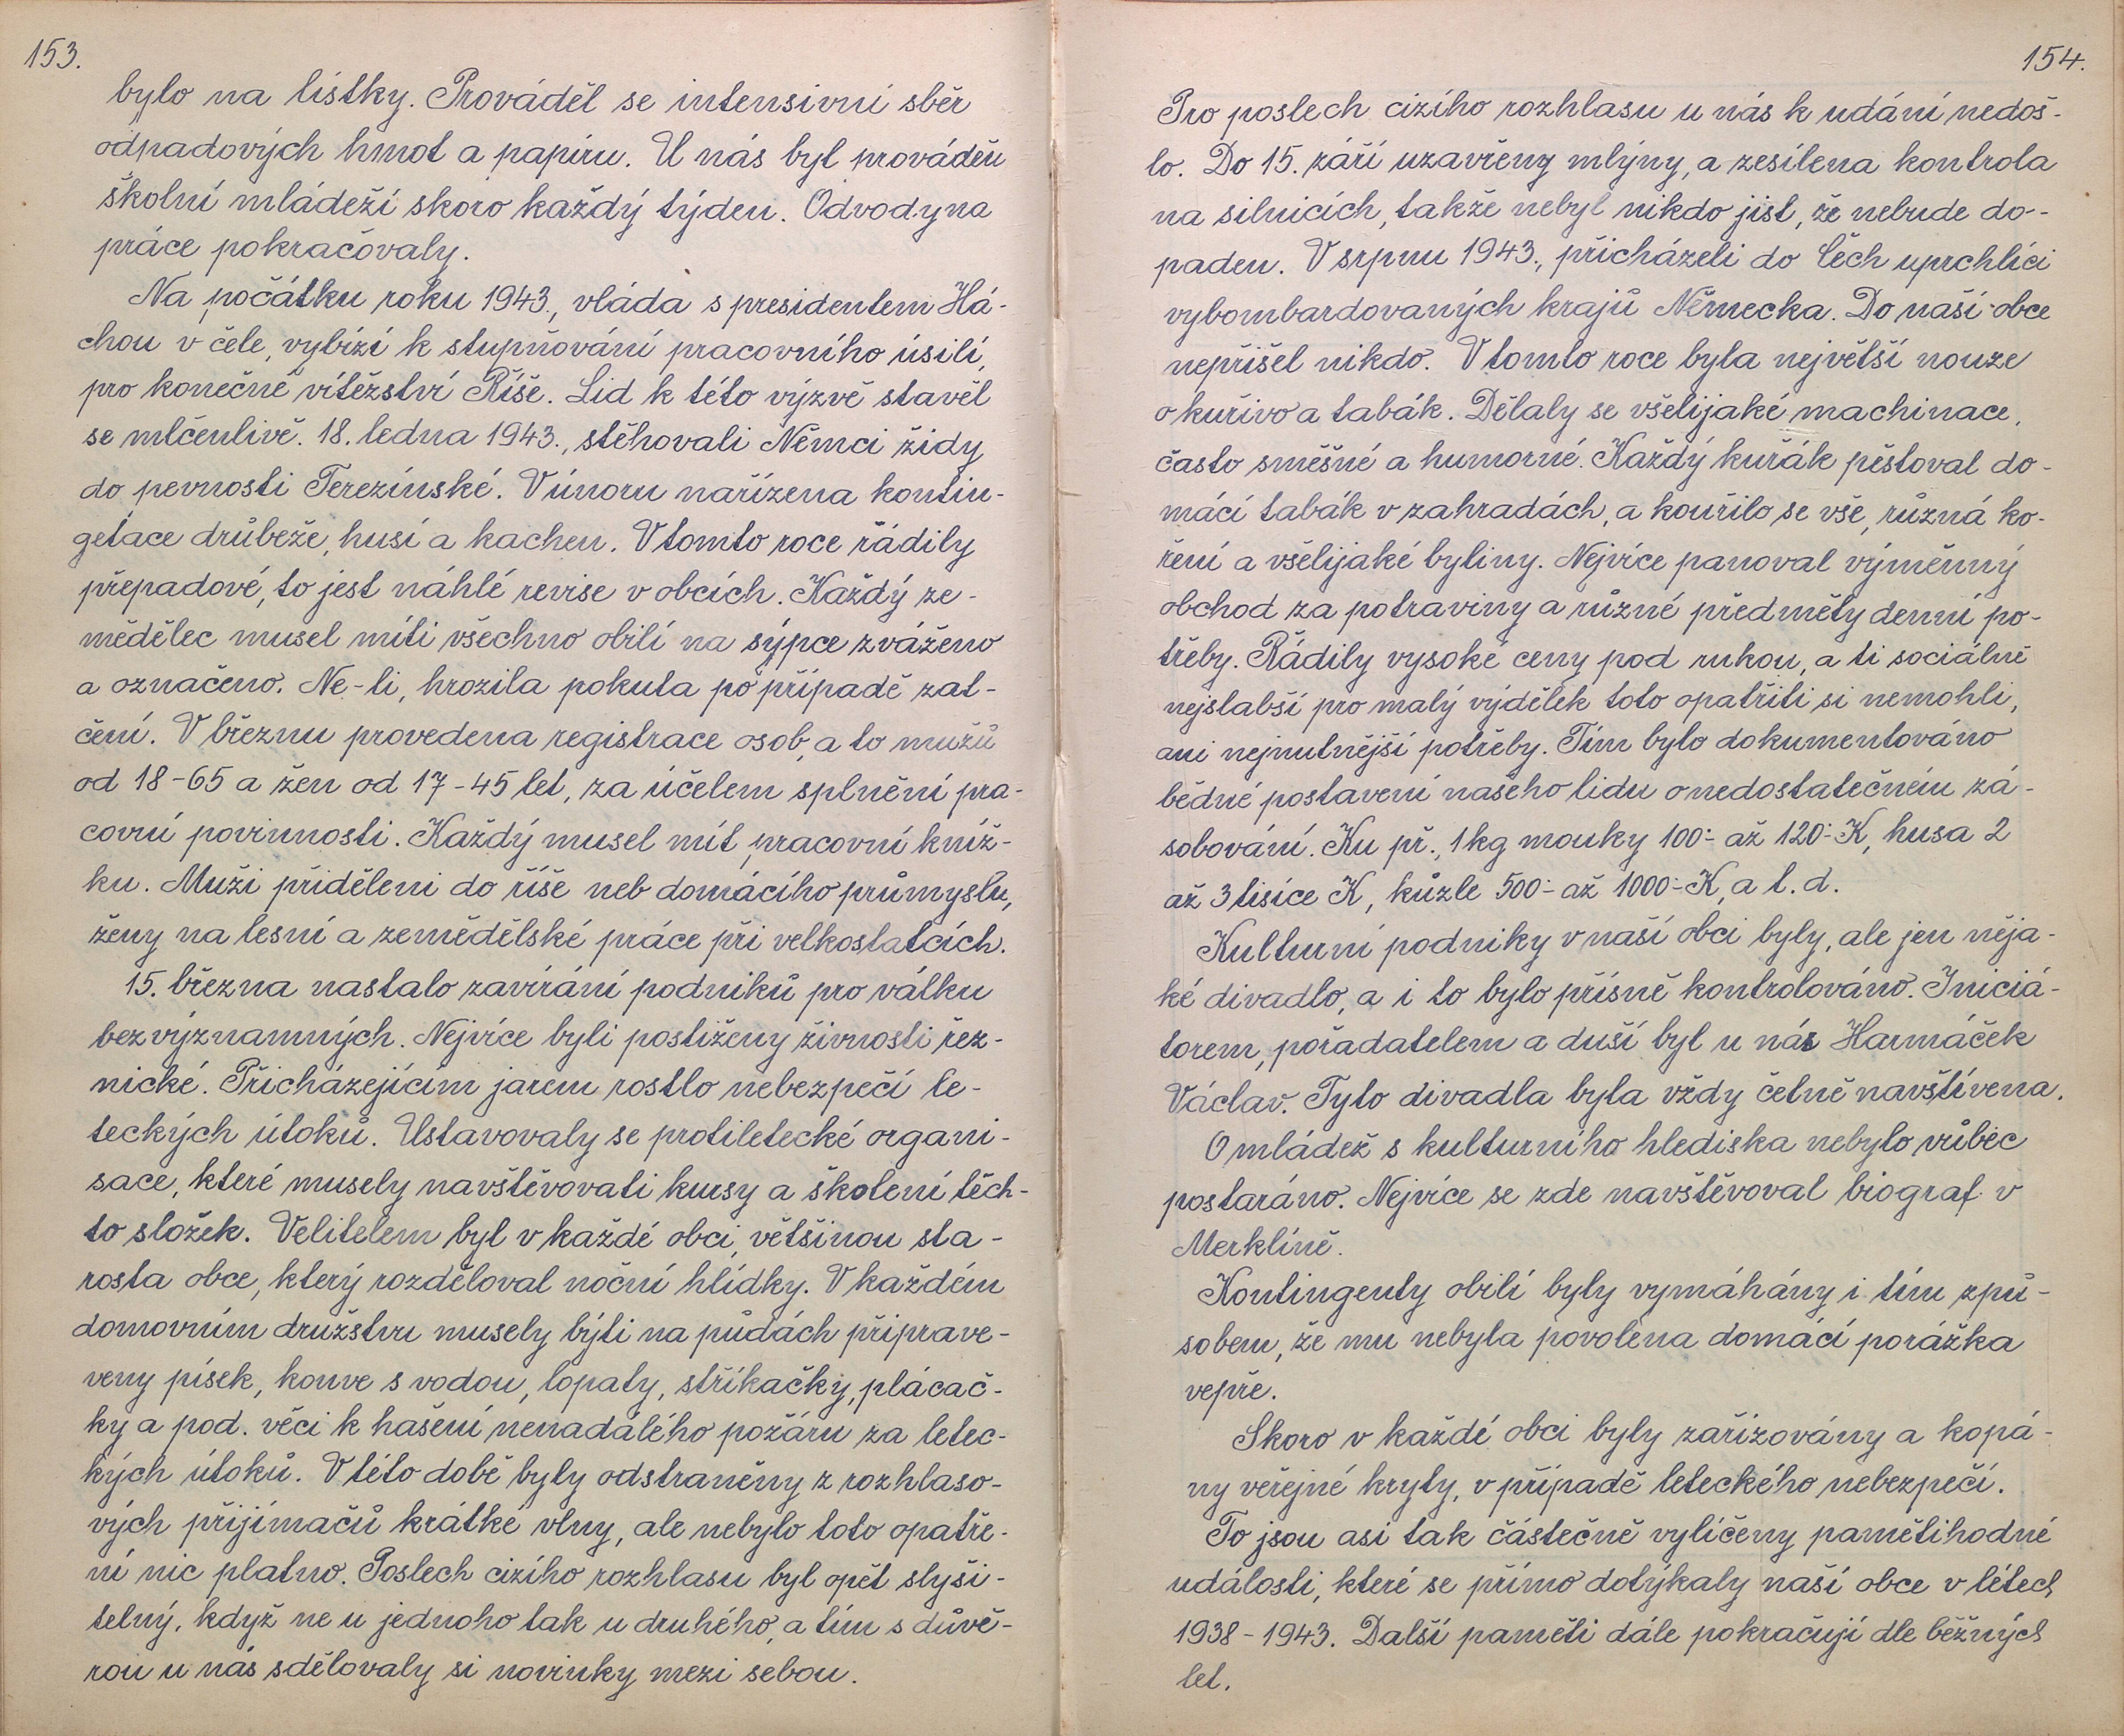 153.
bylo na lístky. Prováděl se intensivní sběr
odpadových hmot a papíru. U nás byl prováděn
školní mládeží skoro každý týden. Odvody na
práce pokračovaly.
Na počátku roku 1943., vláda s presidentem Há-
chou v čele, vybízí k stupňování pracovního úsilí,
pro konečné vítěžství Říše. Lid k této výzvě stavěl
se mlčenlivě. 18. ledna 1943., stěhovali Němci židy
do pevnosti Terezínské. V únoru nařízena kontin-
getace drůbeže, husí a kachen. V tomto roce řádily
přepadové, to jest náhlé revise v obcích. Každý ze-
mědělec musel míti všechno obilí na sýpce zváženo
a označeno. Ne-li, hrozila pokuta po případě zat-
čení. V březnu provedena registrace osob, a to mužů
od 18-65 a žen od 17-45 let, za účelem splnění pra-
covní povinnosti. Každý musel mít pracovní kníž-
ku. Muži přiděleni do říše neb domácího průmyslu,
ženy na lesní a zemědělské práce při velkostatcích.
15. března nastalo zavírání podniků pro válku
bezvýznamných. Nejvíce byli postiženy živnosti řez-
nické. Přicházejícím jarem rostlo nebezpečí le-
teckých útoků. Ustavovaly se protiletecké organi-
sace, které musely navštěvovati kursy a školení těch-
to složek. Velitelem byl v každé obci, většinou sta-
rosta obce, který rozděloval noční hlídky. V každém
domovním družstvu musely býti na půdách připrave-
veny písek, konve s vodou, lopaty, stříkačky, plácač-
ky a pod. věci k hašení nenadálého požáru za letec-
kých útoků. V této době byly odstraněny z rozhlaso-
vých přijímačů krátké vlny, ale nebylo toto opatře-
ní nic platno. Poslech cizího rozhlasu byl opět slyši-
telný, když ne u jednoho tak u druhého, a tím s důvě-
rou u nás sdělovaly si novinky mezi sebou.
154.
Pro poslech cizího rozhlasu u nás k udání nedoš-
lo. Do 15. září uzavřeny mlýny, a zesílena kontrola
na silnicích, takže nebyl nikdo jist, že nebude do-
paden. V srpnu 1943., přicházeli do Čěch uprchlíci
vybombardovaných krajů Německa. Do naší obce
nepřišel nikdo. V tomto roce byla největší nouze
o kuřivo a tabák. Dělaly se všelijaké machinace,
často směšné a humorné. Každý kuřák pěstoval do-
mácí tabák v zahradách, a kouřilo se vše, různá ko-
ření a všelijaké byliny. Nejvíce panoval výměnný
obchod za potraviny a různé předměty denní po-
třeby. Řádily vysoké ceny pod rukou, a ti sociálně
nejslabší pro malý výdělek toto opatřiti si nemohli,
ani nejnutnější potřeby. Tím bylo dokumentováno
bědné postavení našeho lidu o nedostatečném zá-
sobování. Ku př., 1 kg mouky 100:- až 120:- K, husa 2
až 3 tisíce K, kůzle 500:- až 1000:- K, a t. d.
Kulturní podniky v naší obci byly, ale jen něja-
ké divadlo, a i to bylo přísně kontrolováno. Iniciá-
torem, pořadatelem a duší byl u nás Harmáček
Václav. Tyto divadla byla vždy četně navštívena.
O mládež s kulturního hlediska nebylo vůbec
postaráno. Nejvíce se zde navštěvoval biograf v
Merklíně.
Kontingenty obilí byly vymáhány i tím způ-
sobem, že mu nebyla povolena domácí porážka
vepře.
Skoro v každé obci byly zařizovány a kopá-
ny veřejné kryty, v případě leteckého nebezpečí.
To jsou asi tak částečně vylíčeny pamětihodné
události, které se přímo dotýkaly naší obce v létech
1938-1943. Další paměti dále pokračují dle běžných
let.